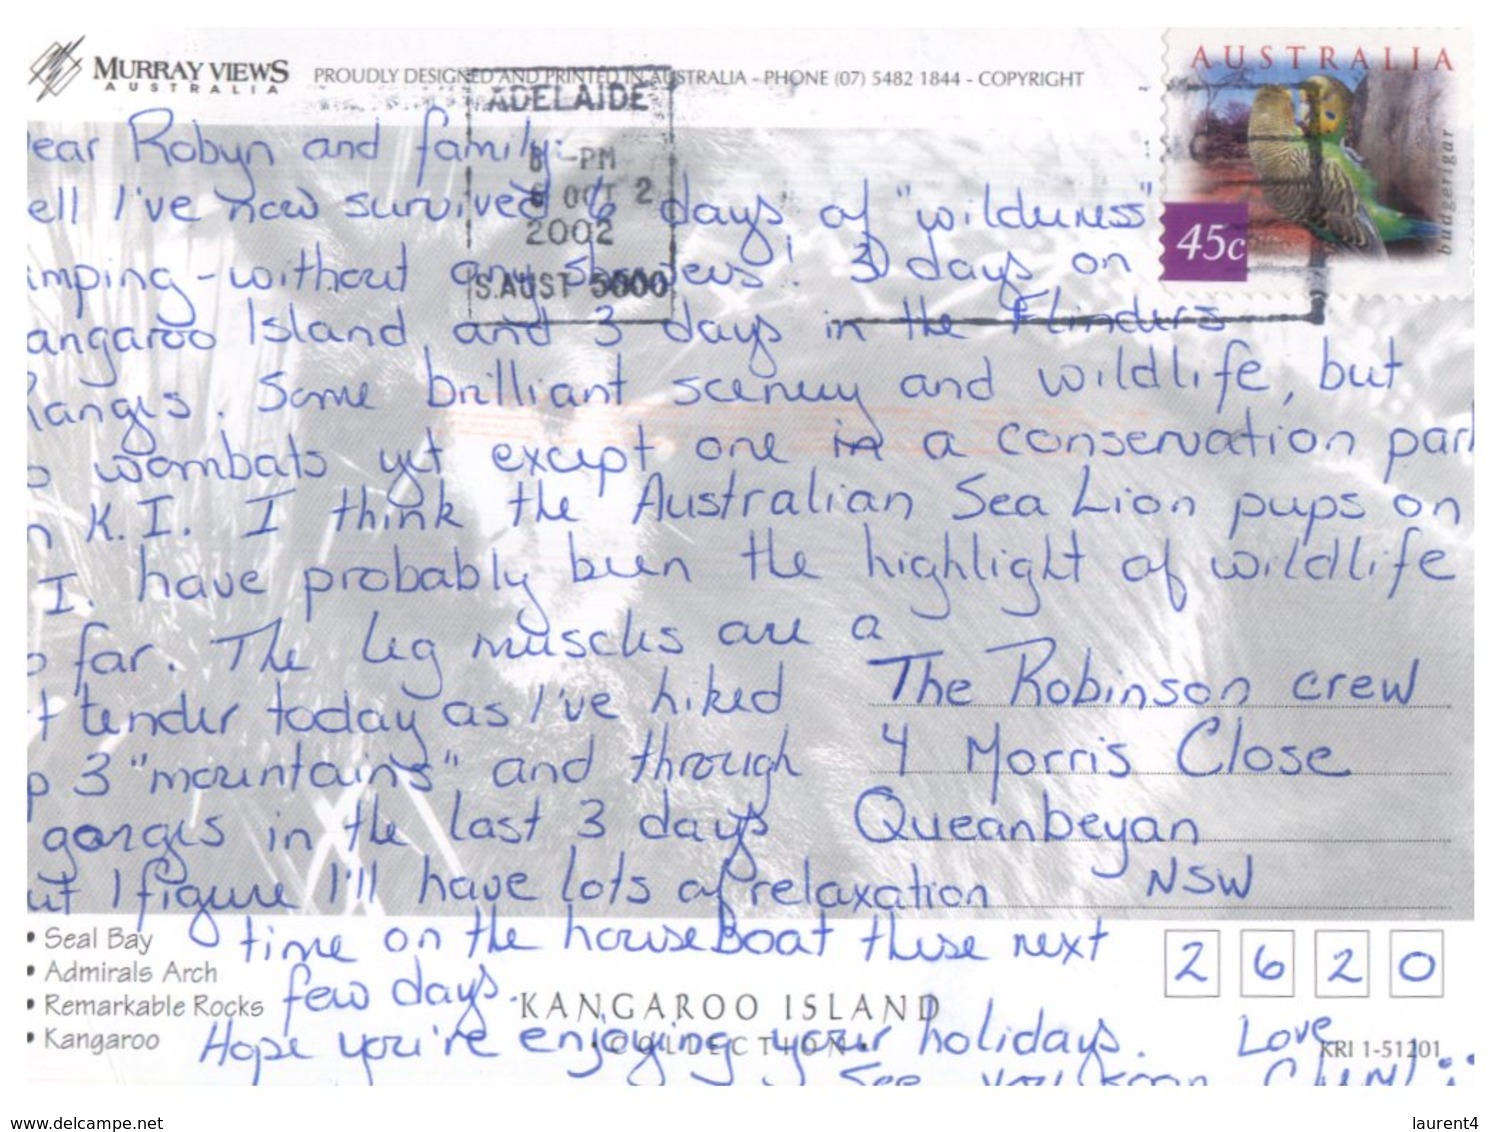 MURRAY VIEWS
AUSTRALIA
PROUDLY DESIGNED AND PRINTED IN AUSTRALIA - PHONE (07) 5482 1844 - COPYRIGHT
AUSTRALIA
budgerigar
45c
ADELAIDE
-PM
OCT 2
2002
S.AUST 5000
ear Robyn and family:
ell I've now survived 6 days of "wilderness"
amping - without any showers! 3 days on
angaroo Island and 3 days in the Flinders
Ranges. Some brilliant scenery and wildlife, but
o wombats yet except one in a conservation park
n K.I. I think the Australian Sea Lion pups on
I. have probably been the highlight of wildlife
o far. The leg muscles are a
t tender today as I've hiked
p 3 "mountains" and through
gorges in the last 3 days
ut I figure I'll have lots of relaxation
time on the houseBoat these next
few days.
Hope you're enjoying your holidays.
Love
See you soon
The Robinson crew
4 Morris Close
Queanbeyan
NSW
2 6 2 0
• Seal Bay
• Admirals Arch
• Remarkable Rocks
• Kangaroo
KANGAROO ISLAND
• COLLECTION •
KRI 1-51201
www.delcampe.net
laurent4